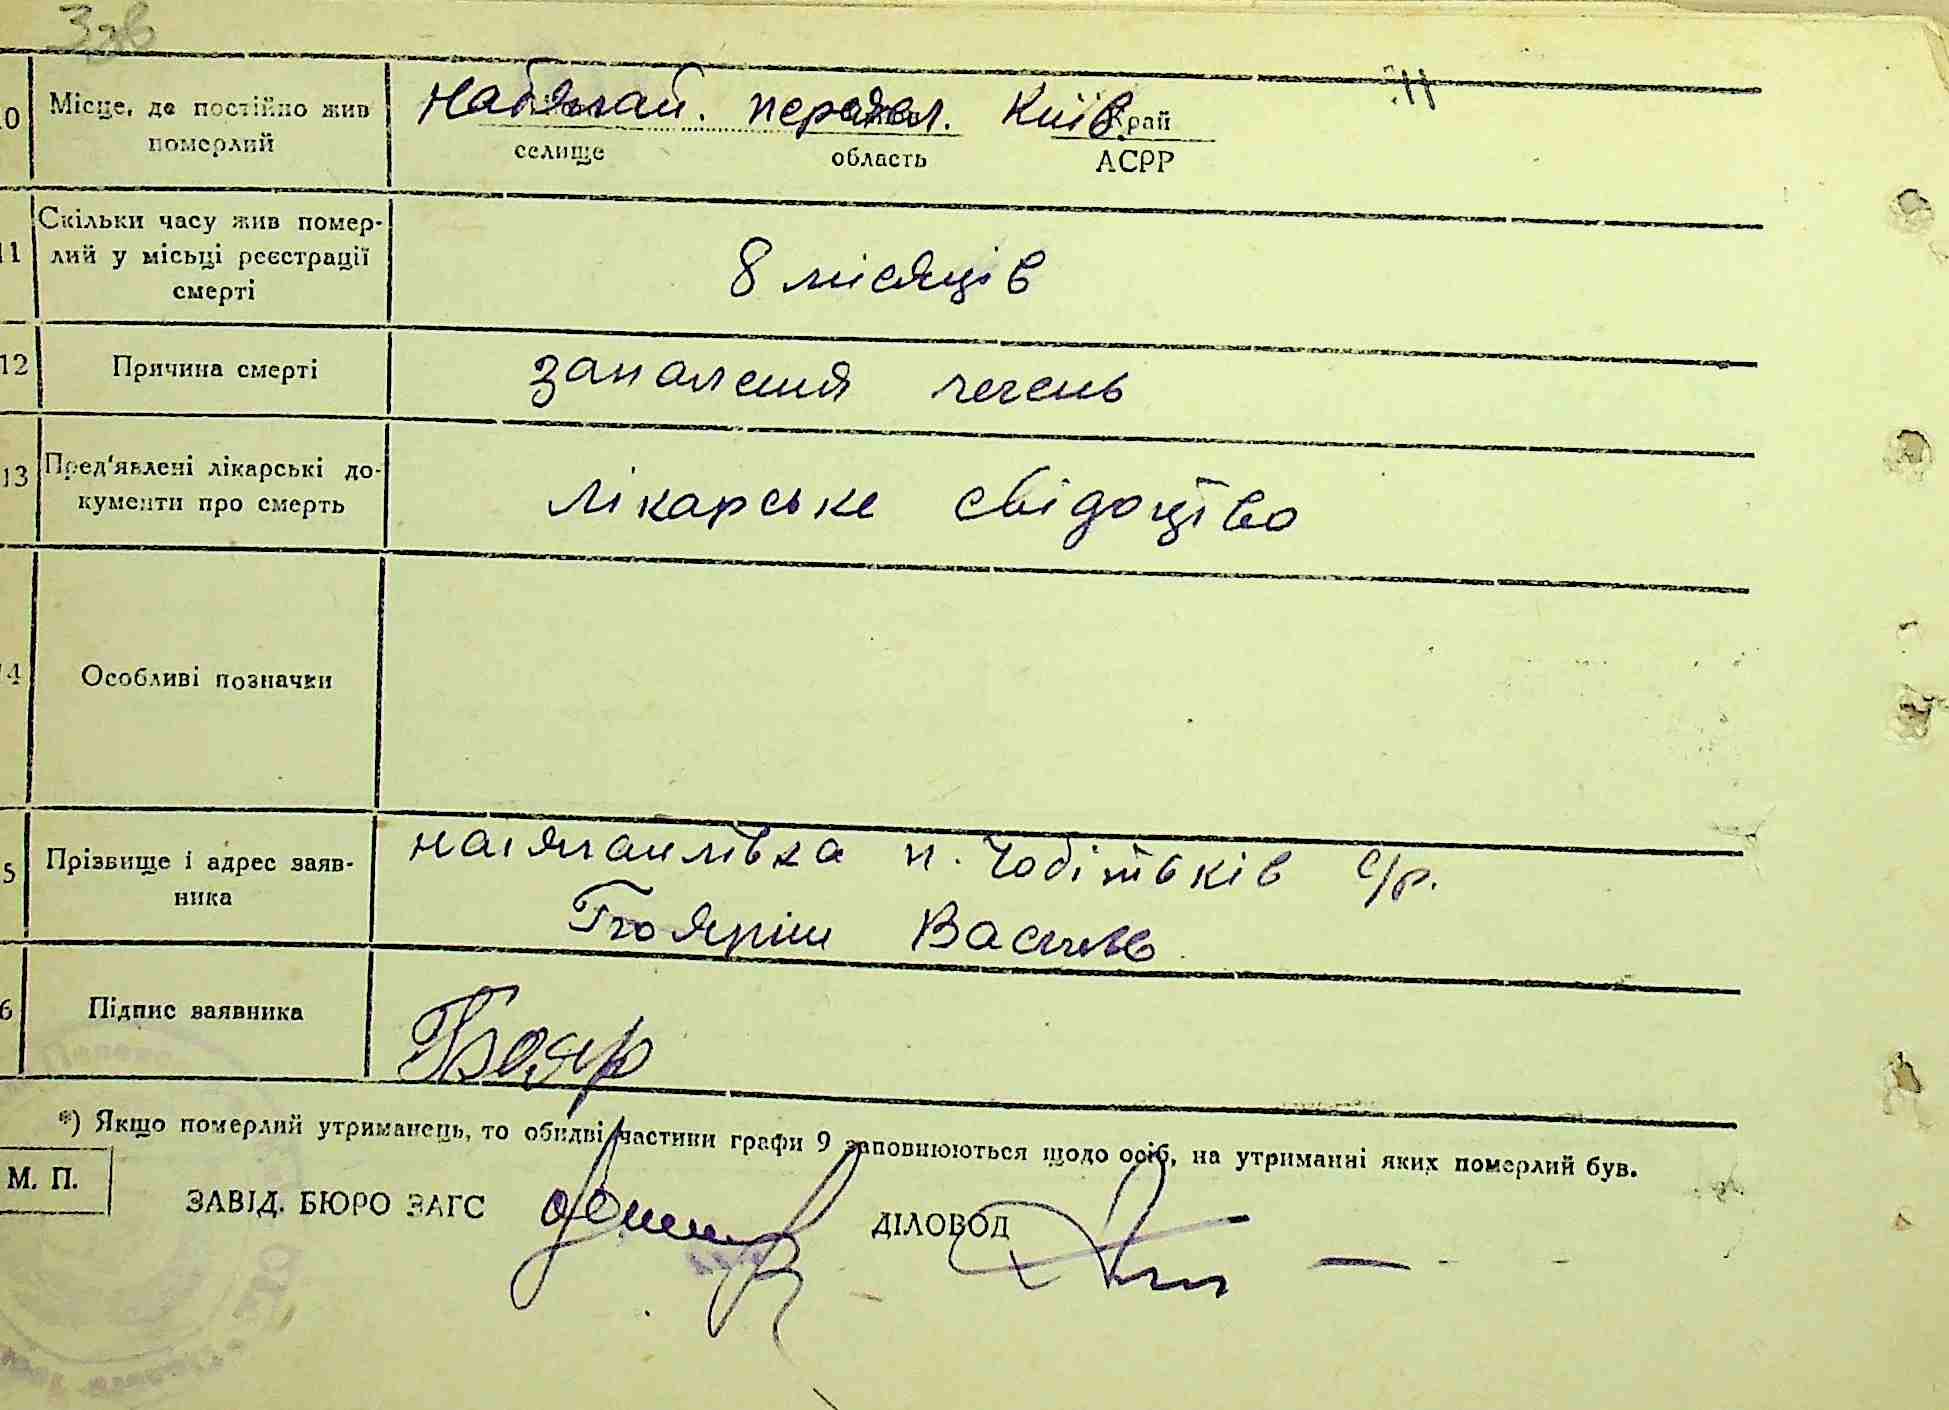 Зав
10 Місце, де постійно жив
померлий
Переясл. Київ. край
селище область АСРР
11 Скільки часу жив помер-
лий у місьці реєстрації
смерті
8 місяців
12 Причина смерті
запалення печень
13 Пред'явлені лікарські до-
кументи про смерть
лікарське свідоцтво
14 Особливі позначки
15 Прізвище і адрес заяв-
ника
п. Чобітьків с/р.
Бояріш Василь
16 Підпис заявника
Бояр
*) Якщо померлий утриманець, то обидві частини графи 9 заповнюються щодо осіб, на утриманні яких померлий був.
М. П.
ЗАВІД. БЮРО ЗАГС ДІЛОВОД